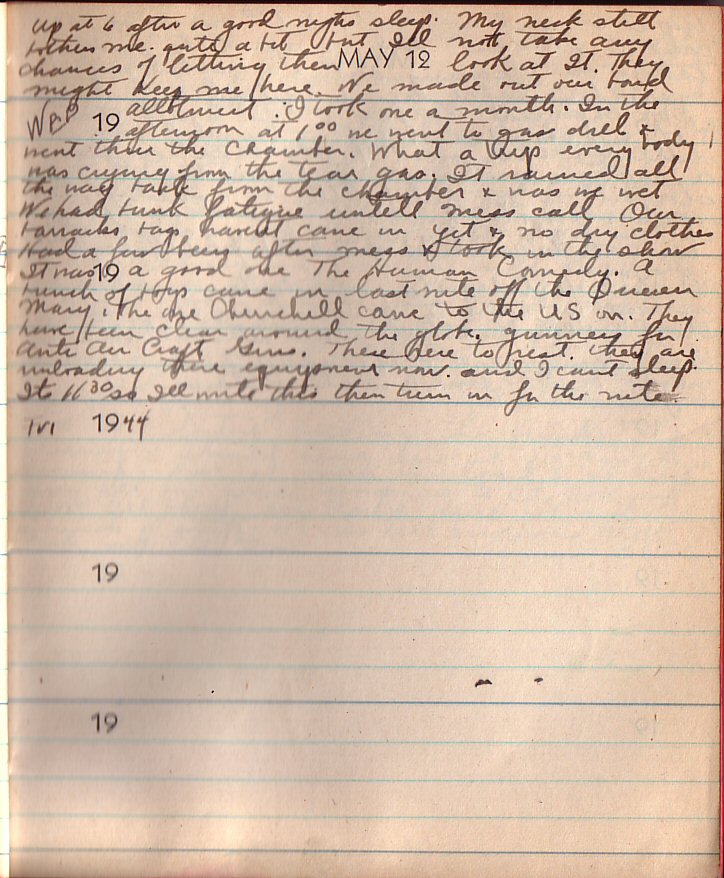 Up at 6 after a good nights sleep. My neck still
bothers me quite a bit but I'll not take any
chances of letting them MAY 12 look at it. they
might keep me here. We made out our bond
allotment. I took one a month. In the
WED 19 afternoon at 1 00 we went to gas drill &
went thru the chamber. What a every body
was crying from the tear gas. It rained all
the way back from the chamber & was we wet
We had bunk fatigue untell mess call Our
barracks bags havent came in yet & no dry clothes
Had a few beers after mess & took in the show
It was 19 a good one The Human Comedy. A
bunch of boys came in last nite off the Queen
Mary, the one Churchill came to the US on. They
have been clear around the globe. gunners for
Anti Air Craft Guns. There here to rest. they are
unloading there equipment now. and I cant sleep.
Its 11 30 so Ill write this then turn in for the nite.
Fri 1944
19
19